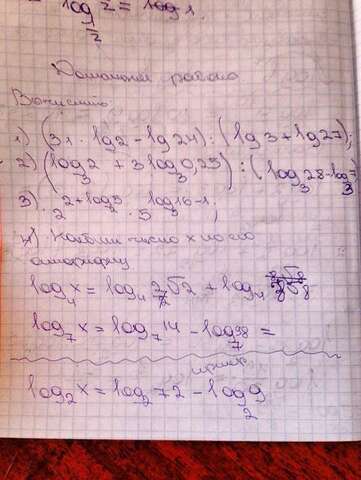 log 2 = log 1.
1/2
Домашняя работа
Вычислить
1) (31 · lg2 - lg24) : (lg3 + lg27);
2) (log₃2 + 3log₃0,25) : (log₃28 - log₃7)
3) 2^(2+log₂3) · 5^(log₅16-1);
4) Найти число x по его
логарифму
log₄x = log₄2√2 + log₄8√8
log₇x = log₇14 - log₇98 =
log₂x = log₂72 - log₂9